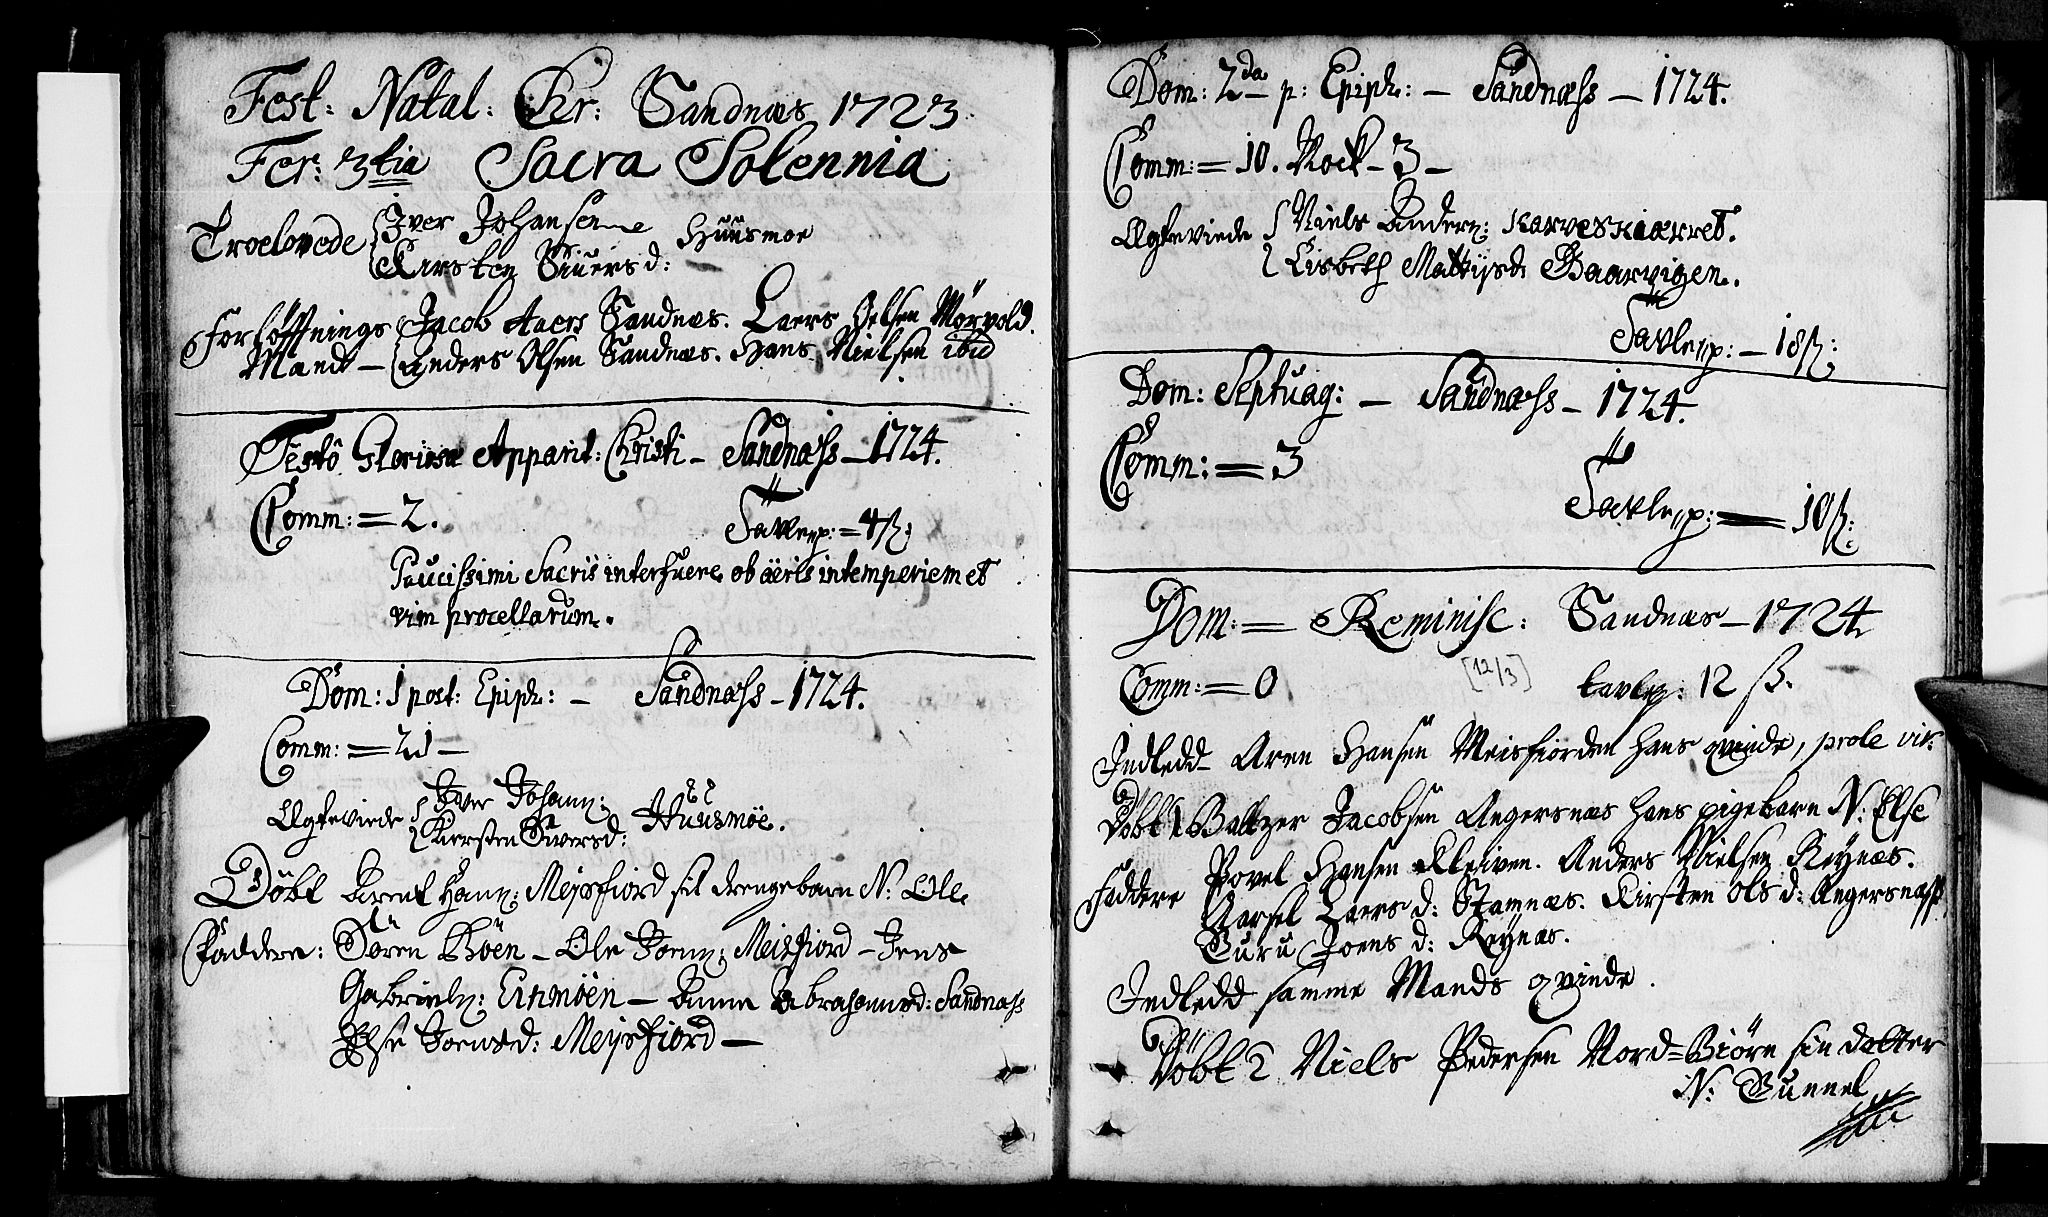 Fest: Natal: Chr: Sandnæs 1723.
Fer: 3tia Sacra Solennia
Troelovede Iver Johansen Huusmoe
Kirsten Siuers d:
Forløffnings Jacob Aaers Sandnæs. Laers Oelsen Mørvold.
Mænd – Anders Olsen Sandnæs. Hans Nielsen ibid
Festô Gloriosæ Apparit: Christi – Sandnæss – 1724.
Comm: = 2. Tavlep: = 4 ß:
Paucissimi Sacris interfuere ob äeris intemperiem et
vim procellarum.
Dom: 1 post: Epiph: – Sandnæss – 1724.
Comm: = 21 –
Ægteviede Iver Johann: Huusmöe.
Kiersten Siversd:
Döbt Arent Hann: Meysfiord sit drengebarn N: Ole
Faddere: Sören – Ole Joenn: Meisfiord – Jens
Gabrieln: Einmöen – Abrahamsd: Sandnæss
Else Joensd: Meysfiord –
Dom: 2da p: Epiph: – Sandnæss – 1724.
Comm: = 10. Nock – 3 –
Ægteviede Niels Andern: Karveskiærret.
Lisbeth Mattysd: Baarvigen.
Tavlep: – 18 ß:
Dom: Septuag: – Sandnæss – 1724.
Comm: = 3
Tavlep: = 10 ß:
Dom: = Reminisc: Sandnæs – 1724
Comm: = 0 [12/3] tavlep: 12 ß.
Indledd – Aren Hansen Meisfiorden hans qvinde, prole vir:
Döbt 1 Baltzer Jacobsen Angersnæs hans pigebarn N: Else
Faddere Povel Hansen Kleiven. Anders Nielsen Reynæs.
Marsel Laers d: Stamnæs. Kirsten Ols d: Angersnæss
Guru Joens d: Reynæs.
Indledd samme Mands qvinde.
Döbt 2 Niels Pedersen Nord=Biörn sin datter
N: Gunnel